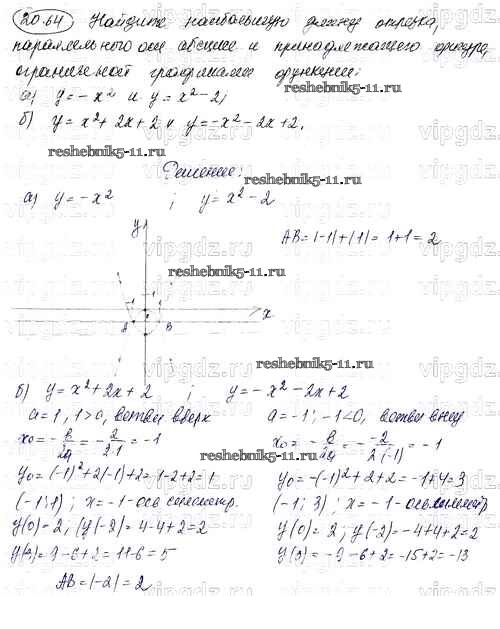 20.64 Найдите наибольшую длину отрезка,
параллельного оси абсцисс и принадлежащего фигуре,
ограниченной графиками функций:
а) y = -x² и y = x² - 2;
б) y = x² + 2x + 2 и y = -x² - 2x + 2.
reshebnik5-11.ru
reshebnik5-11.ru
Решение:
а) y = -x² ; y = x² - 2
y
AB = |-1| + |1| = 1 + 1 = 2
reshebnik5-11.ru
-1 1
x
A B
reshebnik5-11.ru
б) y = x² + 2x + 2 ; y = -x² - 2x + 2
a = 1, 1 > 0, ветви вверх
a = -1; -1 < 0, ветви вниз
x₀ = -b/2a = -2/2·1 = -1
x₀ = -b/2a = - -2/2(-1) = -1
y₀ = (-1)² + 2(-1) + 2 = 1 - 2 + 2 = 1
y₀ = -(-1)² + 2 + 2 = -1 + 4 = 3
(-1; 1) ; x = -1 - ось симметр.
(-1; 3) ; x = -1 - ось симметр
y(0) = 2, y(-2) = 4 - 4 + 2 = 2
y(0) = 2; y(-2) = -4 + 4 + 2 = 2
y(3) = -9 - 6 + 2 = -15 + 2 = -13
AB = |-2| = 2
vipgdz.ru